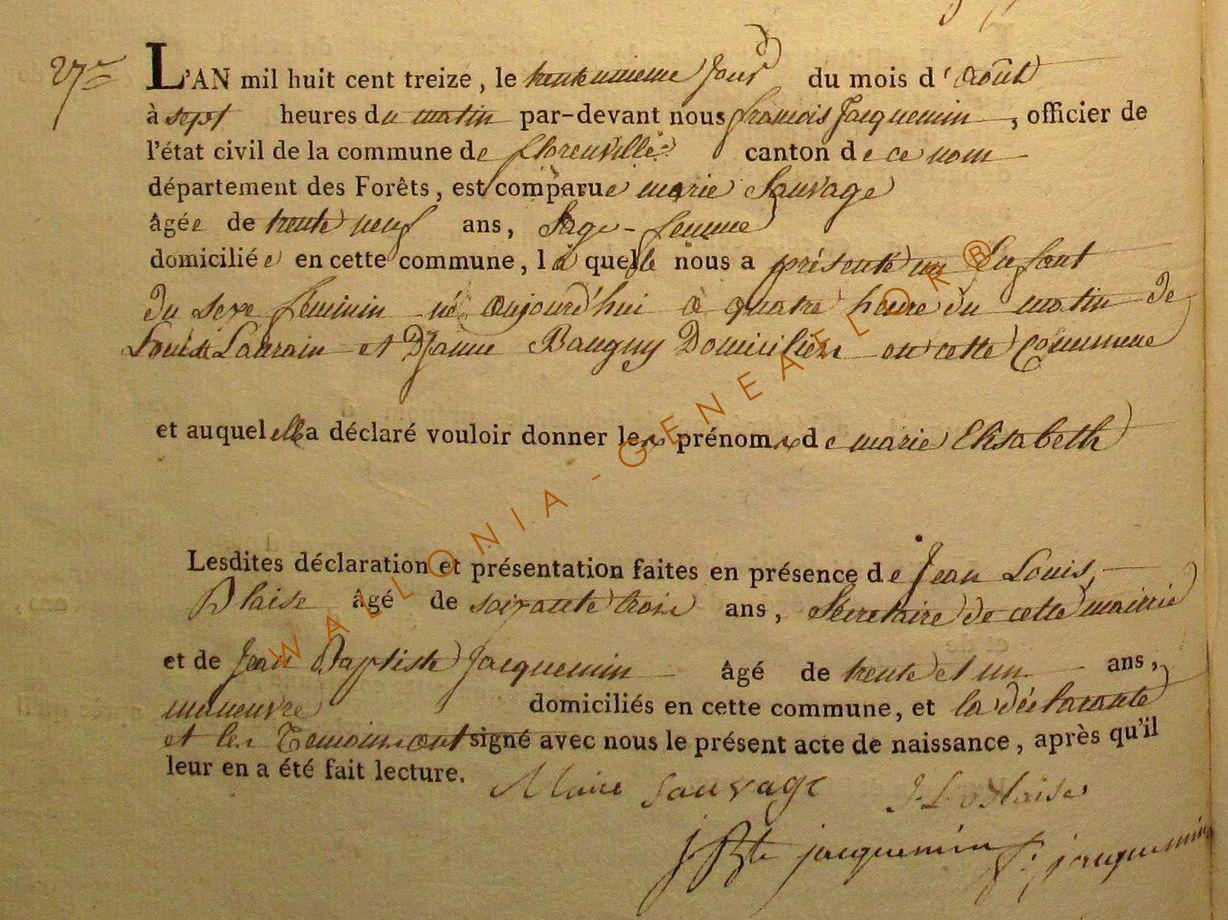 27e
L'AN mil huit cent treize, le trente unieme jour du mois d'Août
à sept heures du matin par-devant nous françois Jacquemin, officier de
l'état civil de la commune de florenville canton de ce nom
département des Forêts, est comparue marie Sauvage
âgée de trente neuf ans, Sage-femme
domiciliée en cette commune, la quelle nous a présenté un Enfant
du sexe féminin né aujourd'hui à quatre heure du matin de
Louis Laurain et Jeanne Baugny Domiciliés en cette Commune
et auquel elle a déclaré vouloir donner les prénoms de marie Elisabeth
Lesdites déclaration et présentation faites en présence de Jean Louis
Blaise âgé de soixante trois ans, Sécretaire de cette mairie
et de Jean Baptiste Jacquemin âgé de trente et un ans,
maneuvre domiciliés en cette commune, et la déclarante
et les Temoins ont signé avec nous le présent acte de naissance, après qu'il
leur en a été fait lecture.
Marie Sauvage J L Blaise
J Bte jacquemin f: jacquemin
WALLONIA-GENEAFLOR®